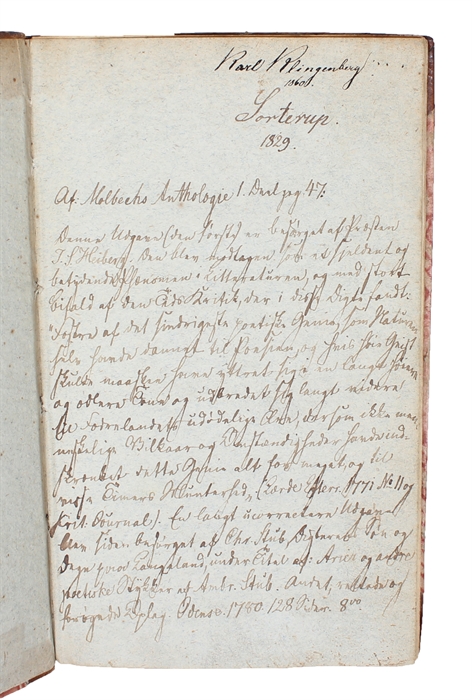 Karl Klingenberg
1860.
Sorterup.
1829.
Af: Molbechs Anthologie 1. Deel pg. 47:
Denne Udgave (den første) er besørget af Provsten
T. S. Heiberg. Den blev modtagen som et sjeldent og
betydende Phænomen i Litteraturen, og med stort
bifald af den Tids Kritik, der i disse Digte fandt:
"Fostre af det sindrigeste poetiske Genie, som Naturen
selv havde dannet til Poesien, og hvis Geist
skulde maaskee have yttret sig i en langt høiere
og ædlere Tone og udbredet sig langt videre
til Fødrenelandets udødelige Ære, dersom ikke men-
neskelige Vilkaar og Omstændigheder havde ind-
skrænket dette Genie alt for meget, og til
visse Timers Munterhed," (Lærde Efterr. 1771 No 11 og
Krit. Journal). En langt ucorrectere Udgave
blev siden besørget af Chr. Stub, Digterens Søn og
Degn paa Langeland, under Titel af: Arier og andre
poetiske Stykker af Ambr. Stub. Andet, rettede og
forøgede Oplag. Odense. 1780. 128 Sider. 8vo